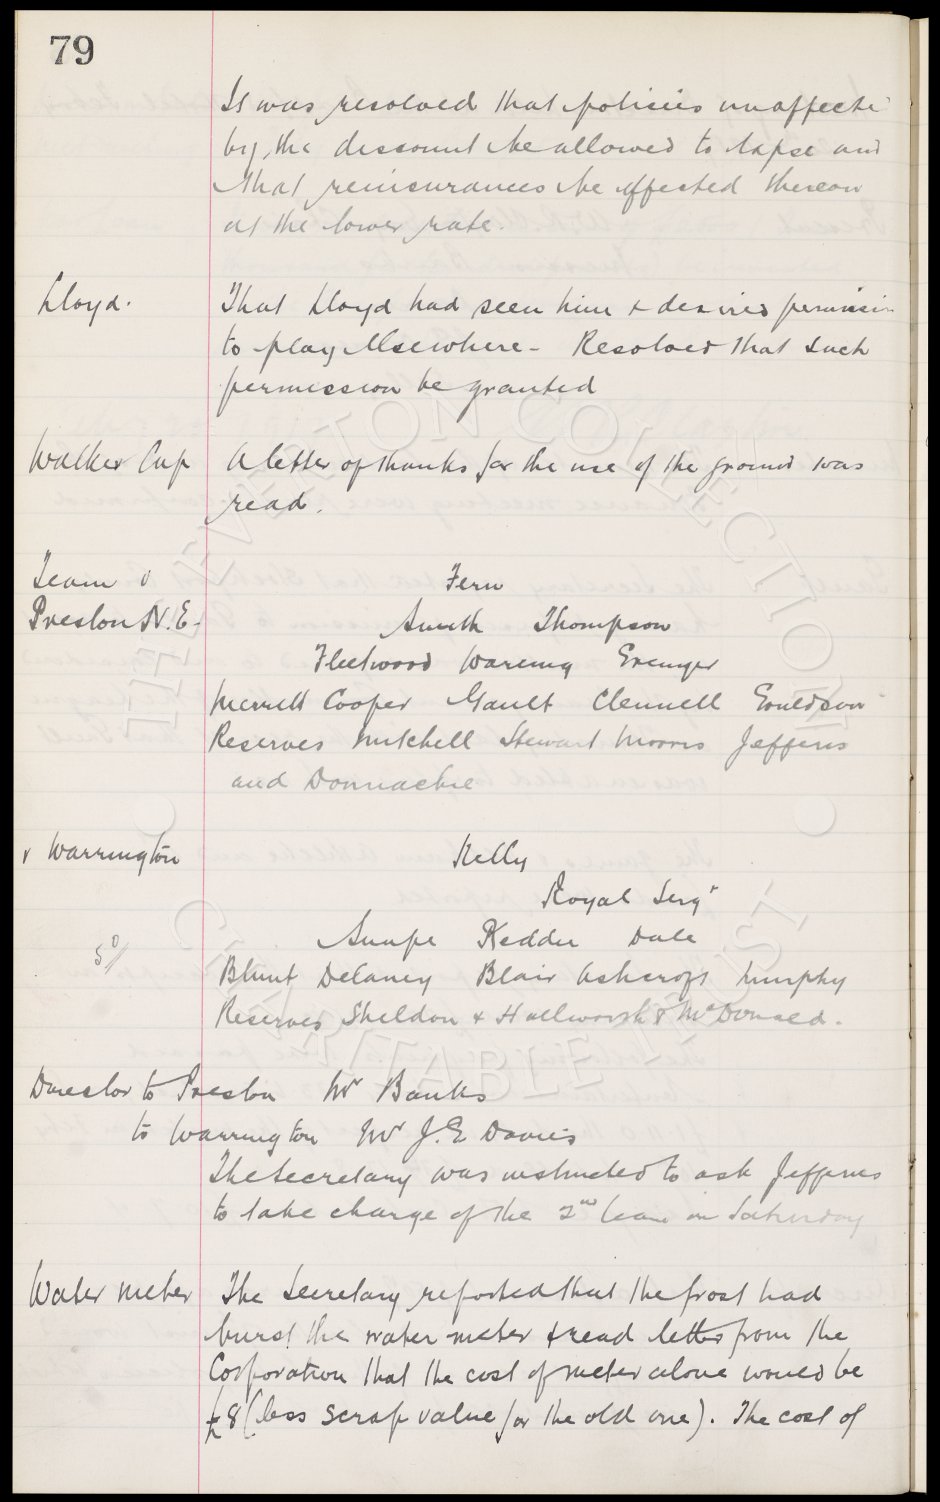 79
It was resolved that policies unaffecte
by the discount be allowed to lapse and
that reinsurances be effected thereon
at the lower rate.
Lloyd. That Lloyd had seen him & desired permission
to play elsewhere - Resolved that such
permission be granted
Walker Cup A letter of thanks for the use of the ground was
read.
Team v Fern
Preston N.E. Smith Thompson
Fleetwood Wareing Grenyer
Merritt Cooper Gault Clennell Gouldson
Reserves Mitchell Stewart Morris Jefferis
and Donnachie
v Warrington Kelly
Royal Serg't
Snape Kedder Dale
Blunt Delaney Blair Ashcroft Murphy
Reserves Sheldon & Hallworth & McDonald.
Director to Preston Mr Banks
to Warrington Mr J.E Davies
The Secretary was instructed to ask Jefferis
to take charge of the 2nd team on Saturday
Water Meter The Secretary reported that the frost had
burst the water meter & read letter from the
Corporation that the cost of meter alone would be
£8 (less scrap value for the old one). The cost of
THE EVERTON COLLECTION
CHARITABLE TRUST